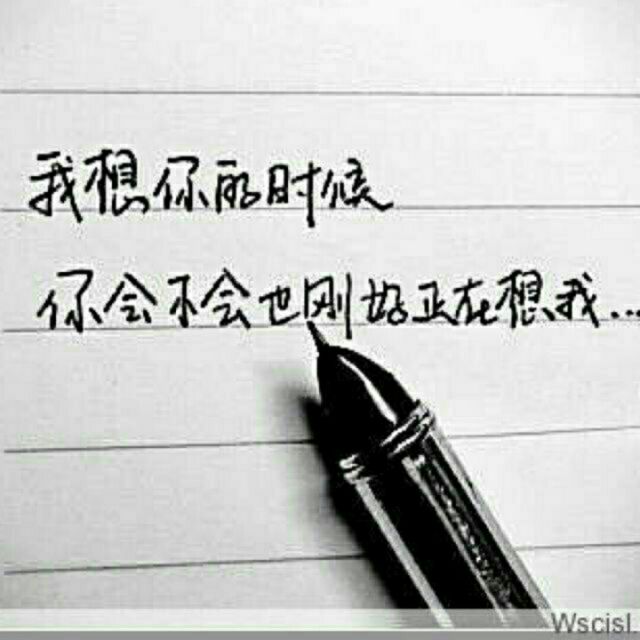 我想你的时候
你会不会也刚好正在想我...
Wscisl.